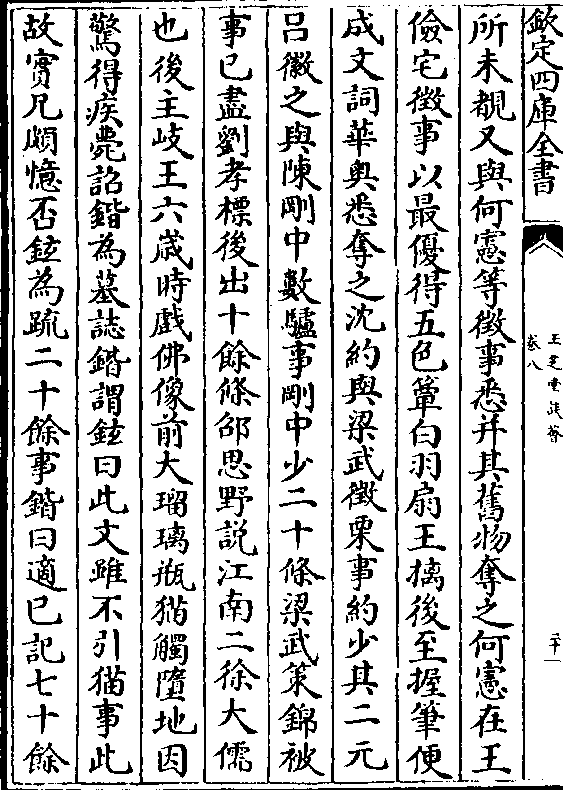 欽定四庫全書
玉芝堂談薈
卷八
二十一
所未覩又與何憲等徵事悉并其舊物奪之何憲在王
儉宅徵事以最優得五色簟白羽扇王摛後至握筆便
成文詞華奥悉奪之沈約與梁武徵栗事約少其二元
吕徽之與陳剛中數驢事剛中少二十條梁武策錦被
事已盡劉孝標後出十餘條邵思野説江南二徐大儒
也後主岐王六歳時戲佛像前大瑠璃瓶猫觸墮地因
驚得疾薨詔鍇為墓誌鍇謂鉉曰此文雖不引猫事此
故實凡頗憶否鉉為疏二十餘事鍇曰適已記七十餘